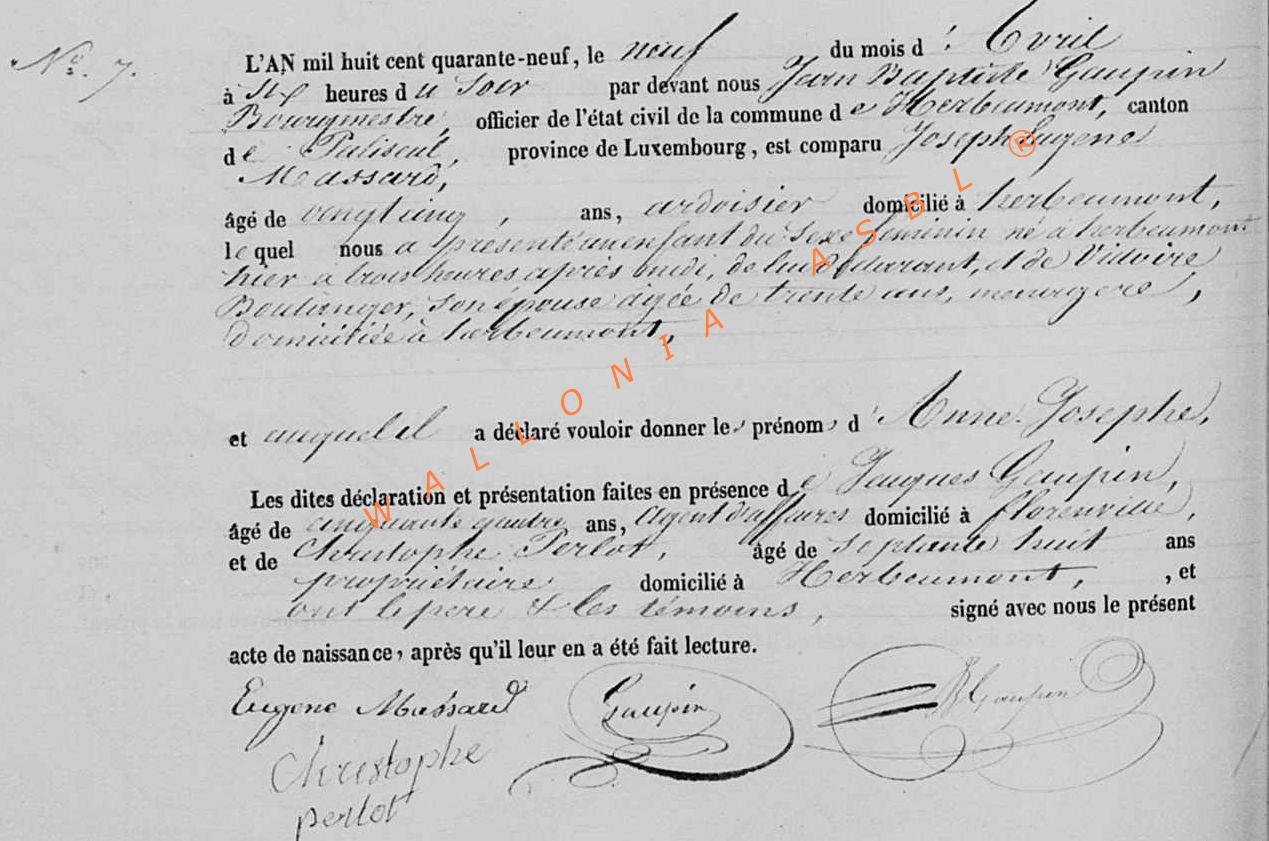 N.º 7.
L'AN mil huit cent quarante-neuf, le neuf du mois d'Avril
à six heures du soir par devant nous Jean Baptiste Gaupin
Bourgmestre, officier de l'état civil de la commune de Herbeumont, canton
de Paliseul, province de Luxembourg, est comparu Joseph Eugene
Massard,
âgé de vengtcinq, ans, ardoisier domicilié à herbeumont,
le quel nous a présenté un enfant du Sexe feminin né à herbeumont
hier a trois heures après midi, de lui déclarant, et de Victoire
Boulanger, son épouse agée de trente ans, menagere,
domiciliée à herbeumont,
et auquel il a déclaré vouloir donner les prénoms d'Anne Josephe,
Les dites déclaration et présentation faites en présence de Jacques Gaupin,
âgé de cinquante quatre ans, agent d'affaires domicilié à florenville,
et de Christophe Perlot, âgé de septante huit ans
propriétaire domicilié à Herbeumont, , et
ont le pere & les témoins, signé avec nous le présent
acte de naissance, après qu'il leur en a été fait lecture.
Eugene Massard Gaupin JBGaupin
Christophe
perlot
WALLONIA ASBL ®